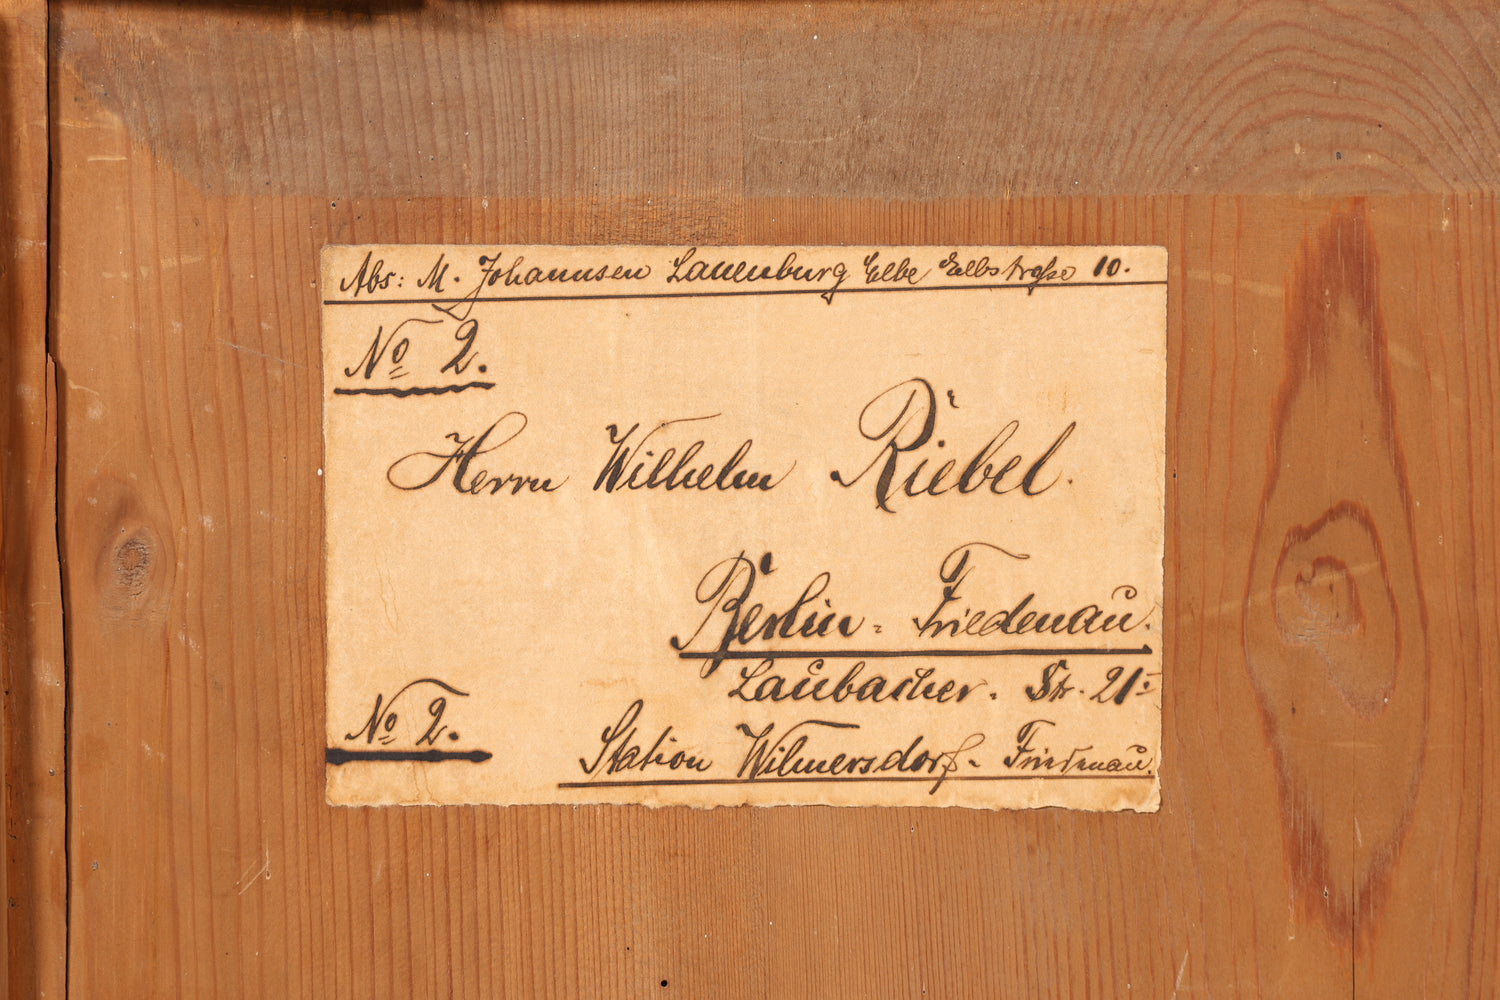 Abs: M. Johannsen Lauenburg Elbe Elbstraße 10.
No 2.
Herrn Wilhelm Riebel.
Berlin-Friedenau.
Laubacher. Str. 21
Station Wilmersdorf-Friedenau.
No 2.